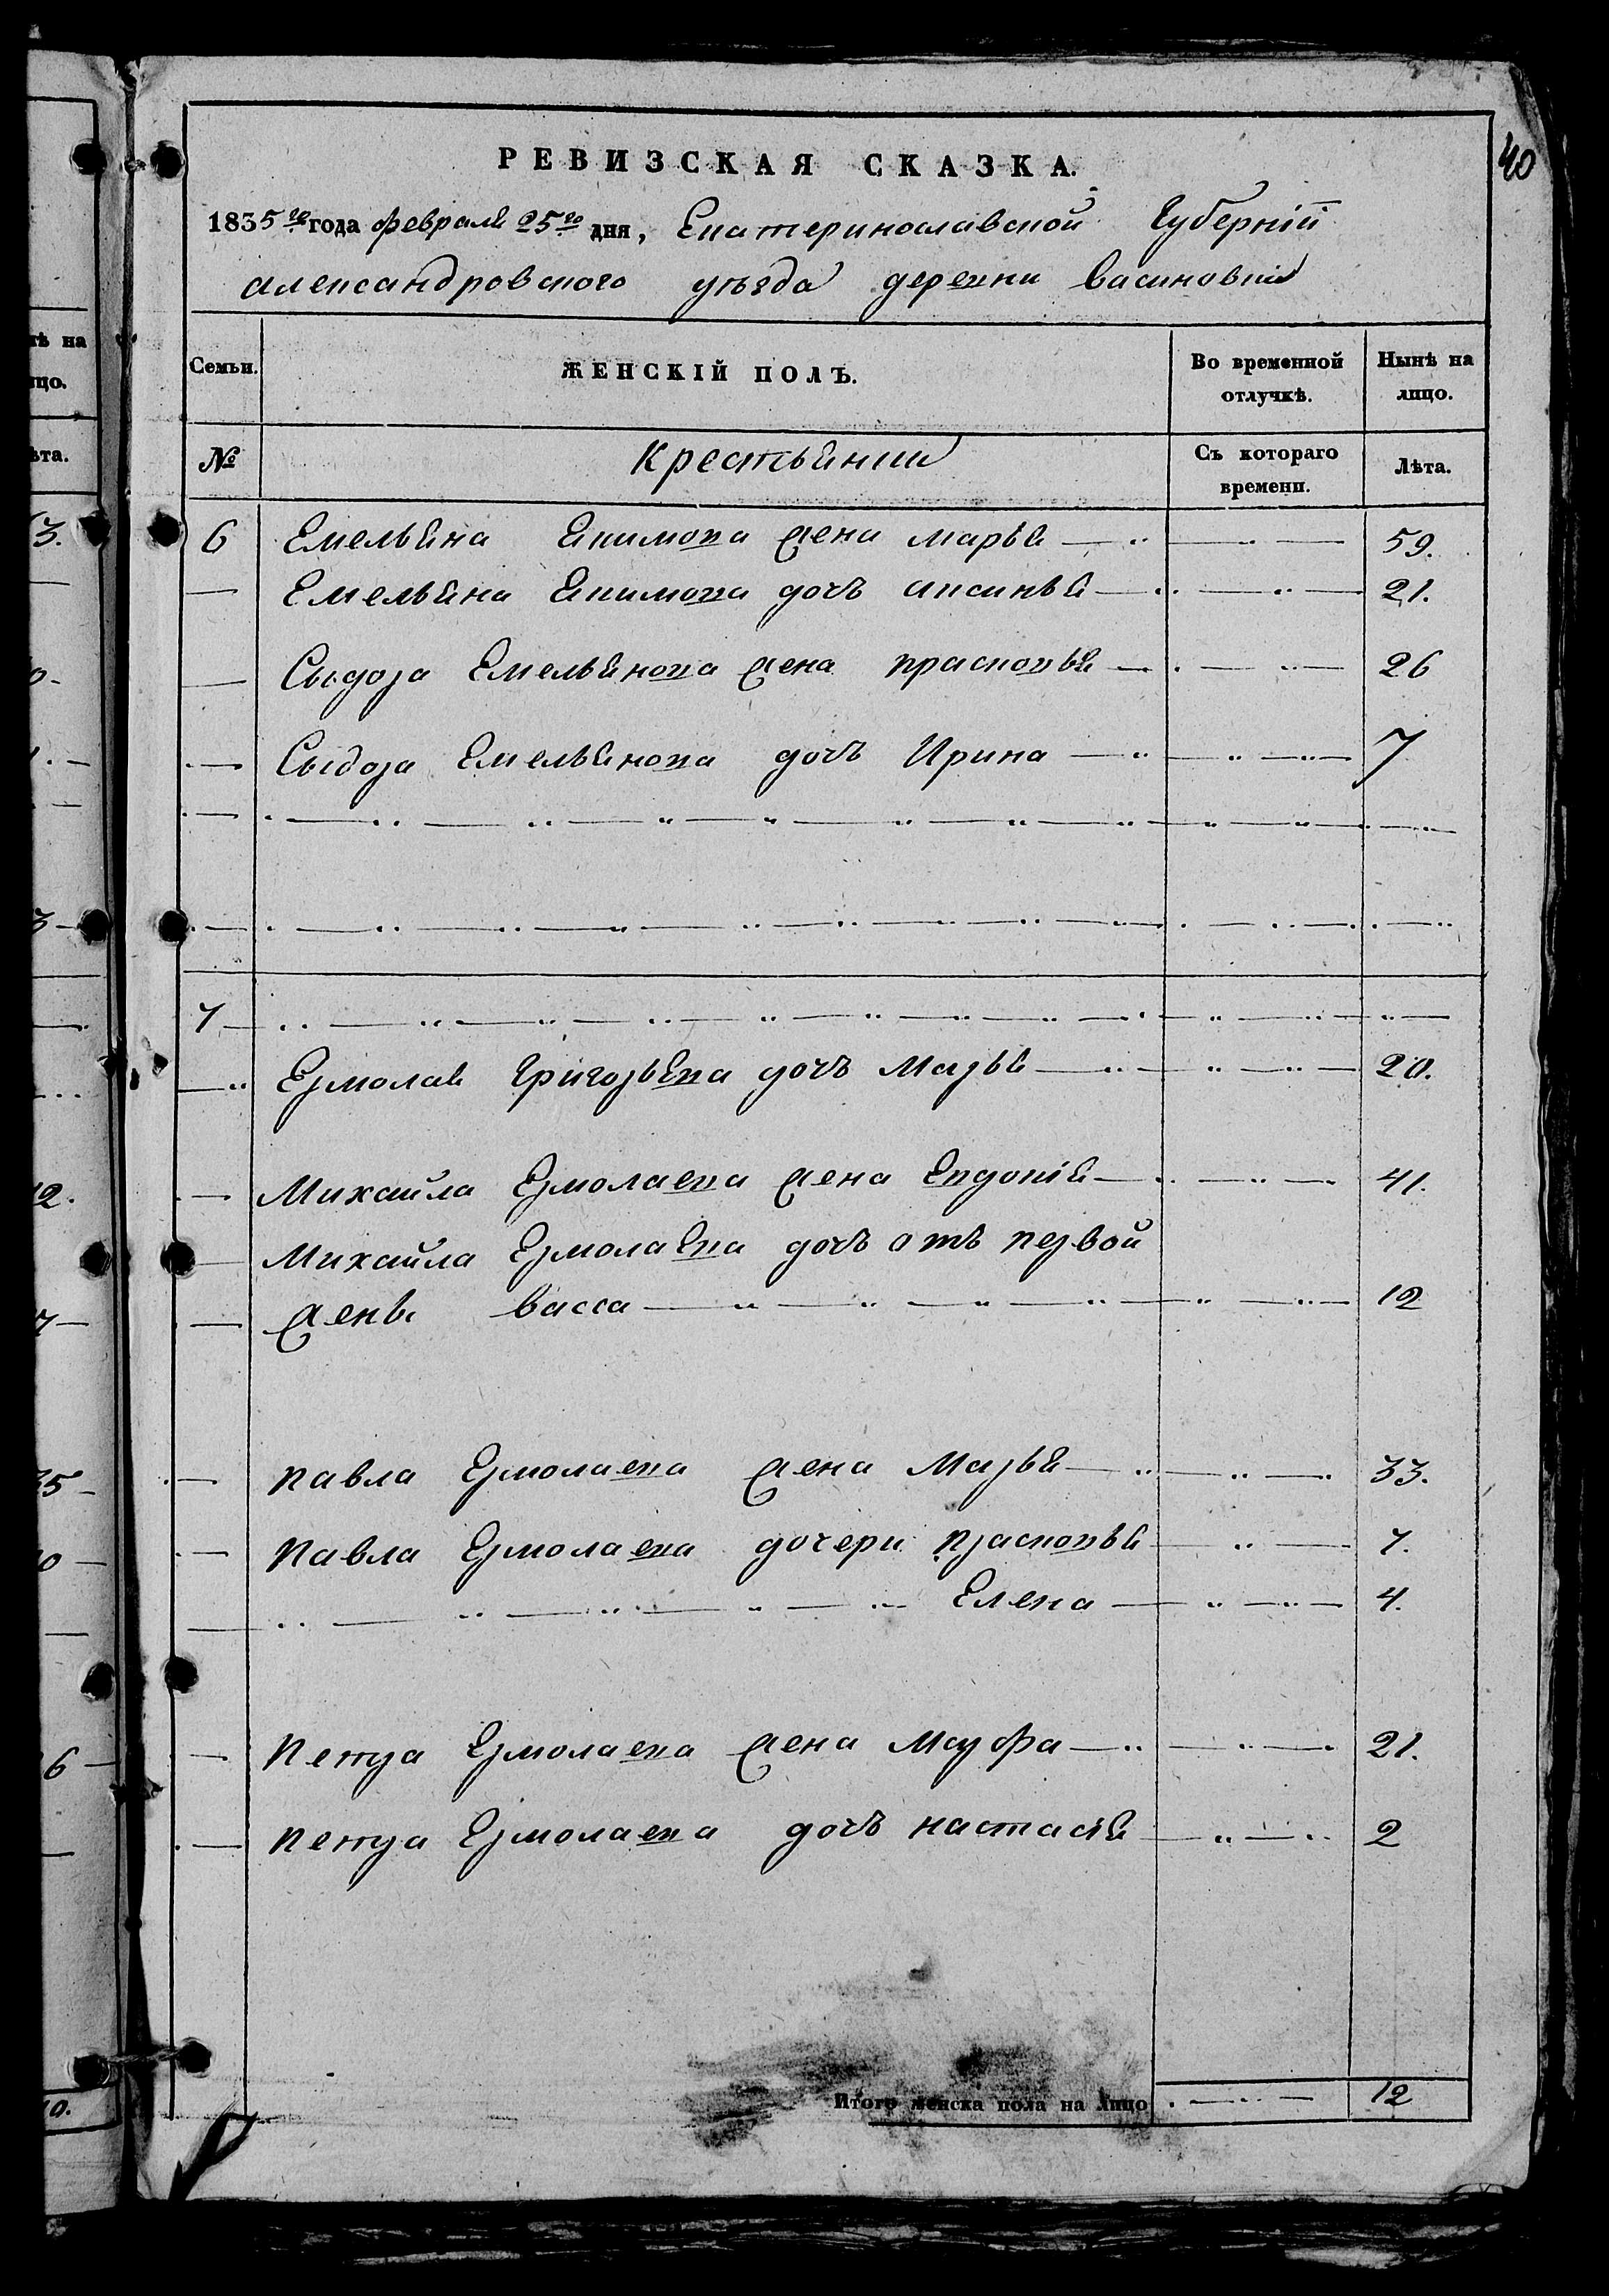 40
РЕВИЗСКАЯ СКАЗКА.
1835го года февраля 25го дня, Екатеринославской Губерніи
александровского уѣзда деревни васиновки
Семьи. ЖЕНСКІЙ ПОЛЪ. Во временной отлучкѣ. Нынѣ на лицо.
№ Крестьянии Съ котораго времени. Лѣта.
6 Емельяна Якимова жена марья 59.
Емельяна Якимова дочъ аксинья 21.
Сыдора Емельянова жена прасковья 26
Сыдора Емельянова дочъ Ирина 7
7
Ермолая Григорьева дочъ Марья 20.
Михайла Ермолаева жена Евдокія 41.
Михайла Ермолаева дочъ отъ первой
жены васса 12
павла Ермолаева жена Марья 33.
павла Ермолаева дочери прасковья 7.
Елена 4.
петра Ермолаева жена Марфа 21.
петра Ермолаева дочъ настасія 2
Итого женска пола на лицо 12